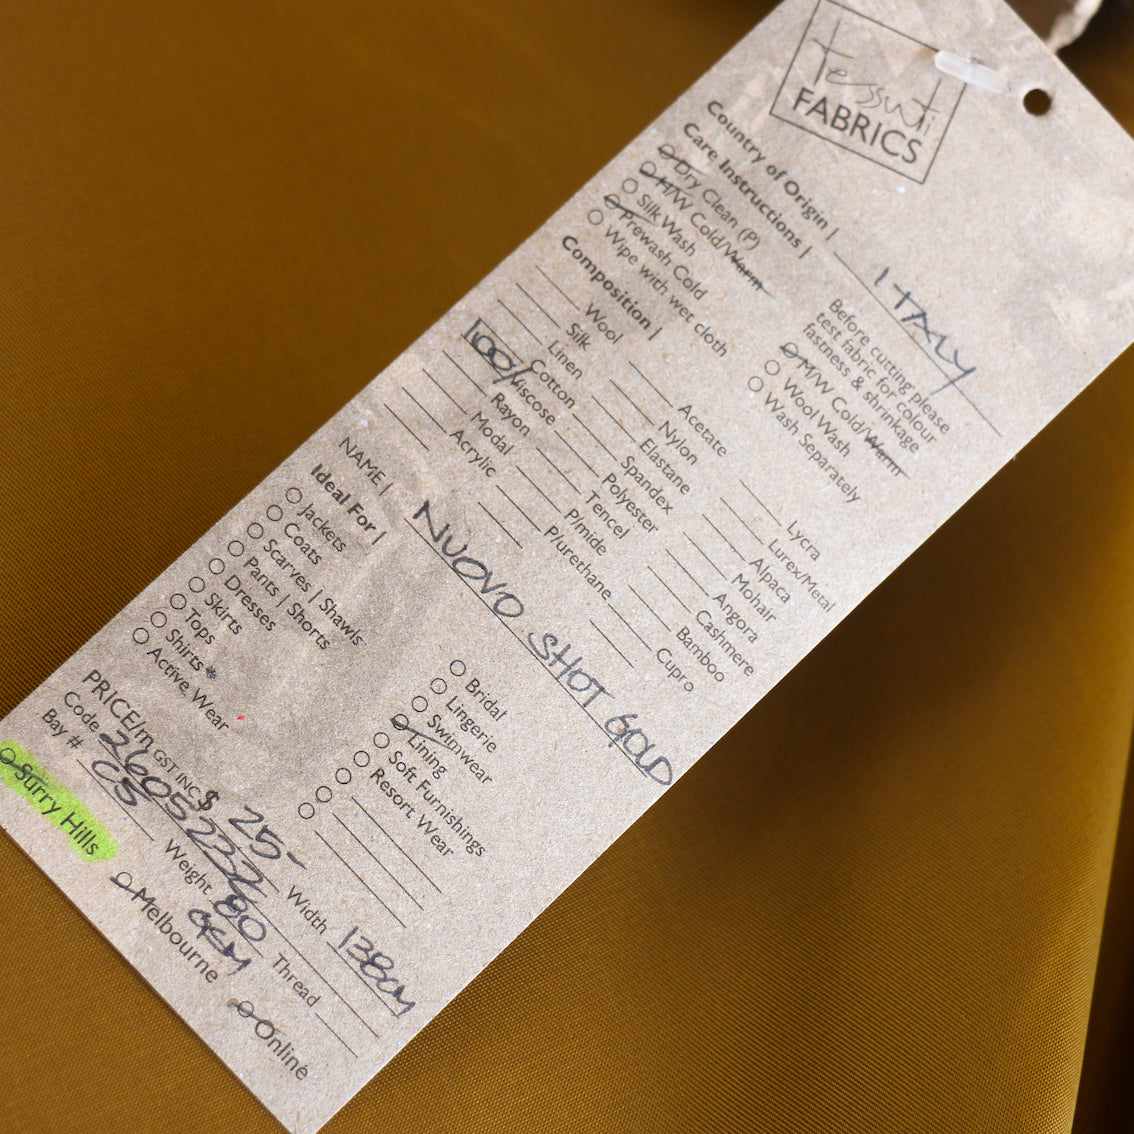 tessuti
FABRICS
Country of Origin | ITALY
Care Instructions |
Dry Clean (P)
H/W Cold/Warm
Silk Wash
Prewash Cold
Wipe with wet cloth
Before cutting please
test fabric for colour
fastness & shrinkage
M/W Cold/Warm
Wool Wash
Wash Separately
Composition |
Wool
Silk
Linen
Cotton
100% Viscose
Rayon
Modal
Acrylic
Acetate
Nylon
Elastane
Spandex
Polyester
Tencel
P/mide
P/urethane
Lycra
Lurex/Metal
Alpaca
Mohair
Angora
Cashmere
Bamboo
Cupro
NAME | NUOVO SHOT GOLD
Ideal For |
Jackets
Coats
Scarves | Shawls
Pants | Shorts
Dresses
Skirts
Tops
Shirts
Active Wear
Bridal
Lingerie
Swimwear
Lining
Soft Furnishings
Resort Wear
PRICE/m GST INC $ 25- Width 138cm
Code 2605222
Bay # C5 Weight 80 GSM Thread
Surry Hills Melbourne Online